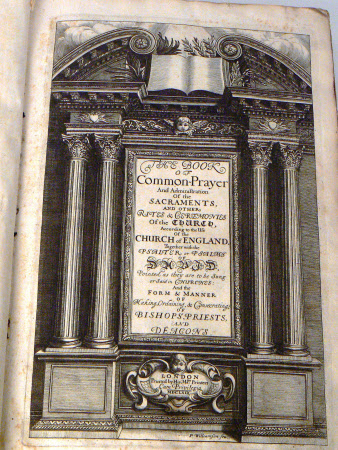 THE BOOK
OF
Common-Prayer
And Administration
Of the
SACRAMENTS,
AND OTHER
RITES & CEREMONIES
Of the CHURCH,
According to the Use
Of the
CHURCH of ENGLAND,
Together with the
PSALTER or PSALMS
OF
DAVID,
Pointed as they are to be Sung
or said in CHURCHES:
And the
FORM & MANNER
OF
Making, Ordaining, & Consecrating
OF
BISHOPS, PRIESTS,
AND
DEACONS
LONDON
Printed by His Ma.ties Printers
Cum Privilegio